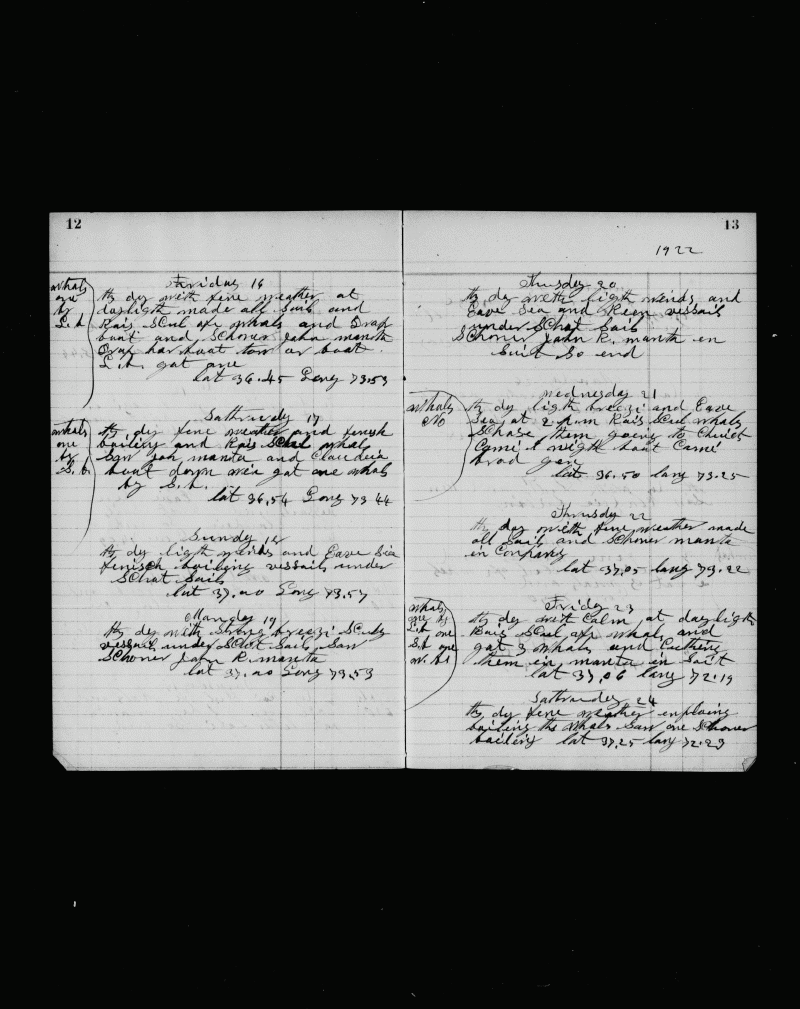 12
Fridy 16
whals
one
by
L.b
th dy with fine weather at
daylight made all Sail and
Rais Scul of whals and Draf
boat and Schoner John manta
Draf har boat tow or boat
L.b. gat one
lat 36.45 Long 73.53
Sathurdy 17
whals
one
by
S.b.
th dy fine weather and finish
boiling and Rais Scul whals
Saw Joh manta and Claudeia
boat down wee gat one whals
by S.b.
lat 36.54 Long 73 44
Sundy 18
th dy ligth winds and Eave Sea
finisch boiling vessails under
SChat Sails
lat 37.00 Long 73.57
Monday 19
th dy with Strong breezi
vessails under SChot Sails Saw
SChoner John R. manta
lat 37.00 Long 73.53
13
1922
Thusday 20
th dy with ligth winds and
Eave Sea and Keen vessails
under SChat Sails
SChoner John R. manta en
Suit So end
wednesday 21
whals
No
th dy ligth breezi and Eave
Sea at 2 p.m Rais Scul whals
SChase them going to
Came night boat Came
brod gen
lat 36.50 lang 73.25
Thusday 22
th day with fine weather made
all Sails and SChoner manta
in Company
lat 37.05 lang 73.22
Friday 23
whals
one by
L.b one
S.b one
W.b1
th dy with Calm at dayligth
Rais Scul of whals and
gat 3 whals and Cuthing
them in manta in Suit
lat 37.06 lang 72.19
Sathurdey 24
th dy fine weather enploing
boiling the whals Saw one SChoner
boiling lat 37,25 lang 72.23